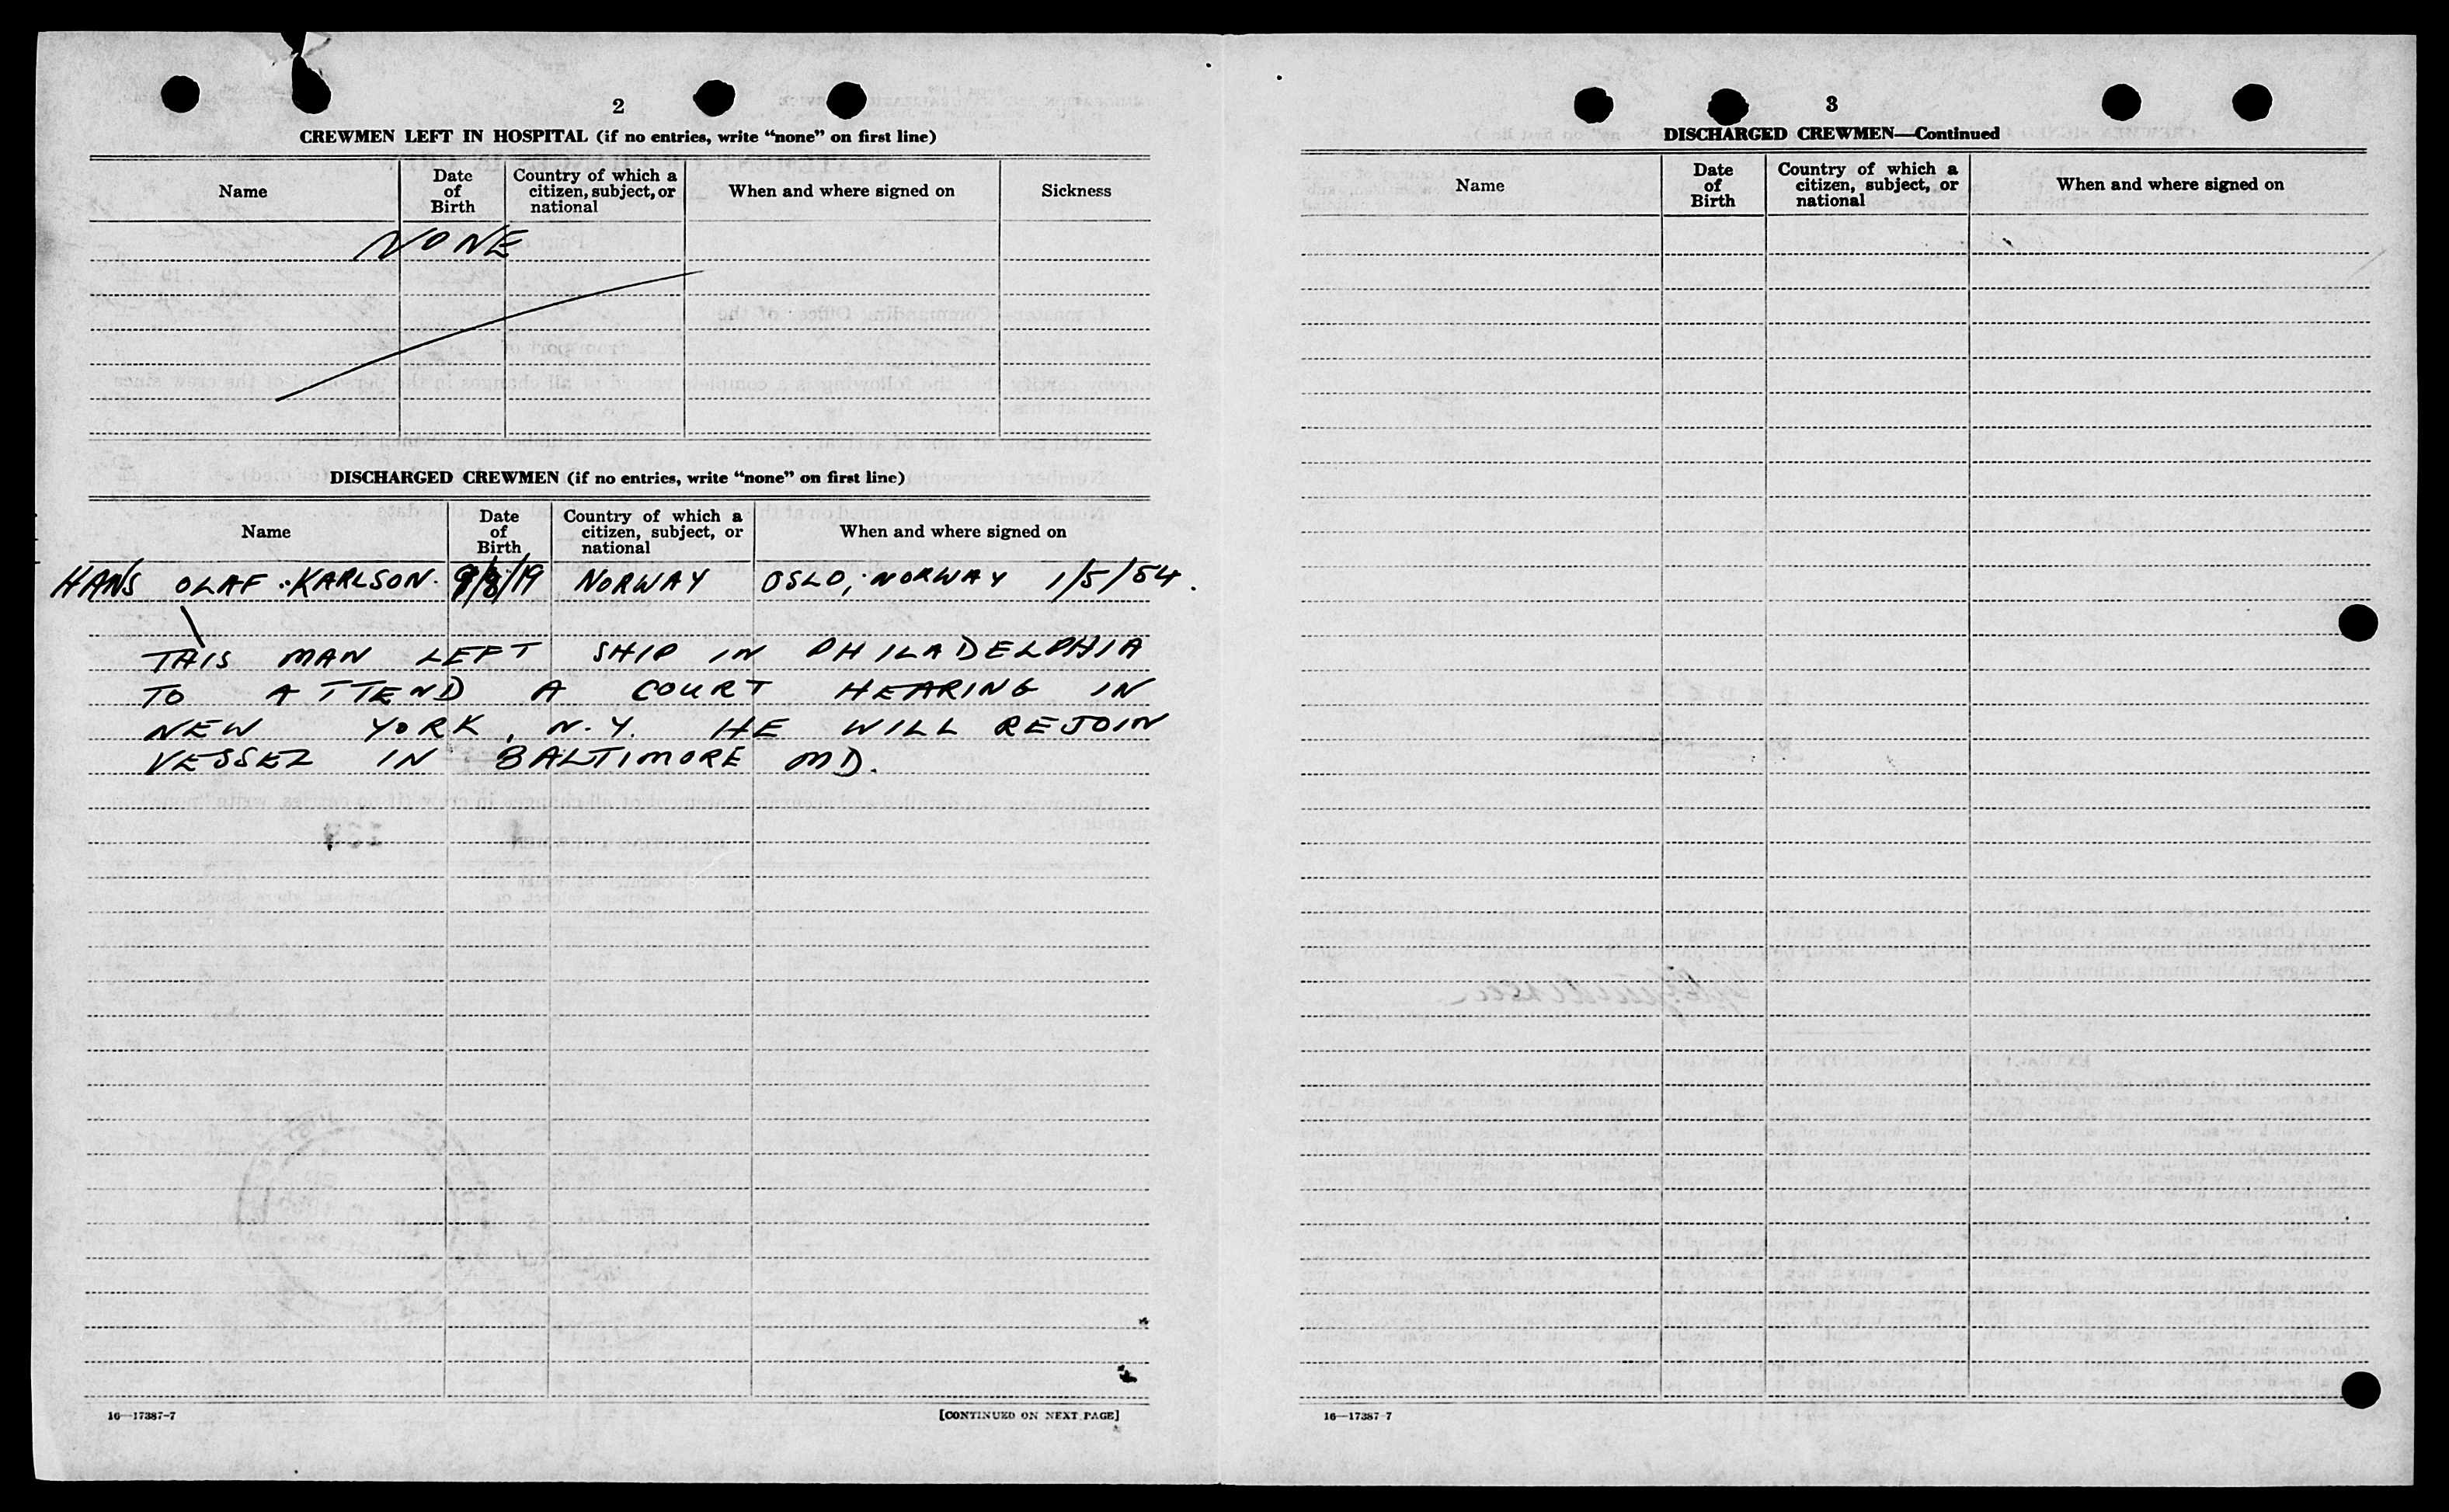 2
CREWMEN LEFT IN HOSPITAL (if no entries, write “none” on first line)
Name
Date of Birth
Country of which a citizen, subject, or national
When and where signed on
Sickness
NONE
DISCHARGED CREWMEN (if no entries, write “none” on first line)
Name
Date of Birth
Country of which a citizen, subject, or national
When and where signed on
HANS OLAF KARLSON. NORWAY OSLO, NORWAY 1/5/54.
THIS MAN LEFT SHIP IN PHILADELPHIA
TO ATTEND A COURT HEARING IN
NEW YORK, N.Y. HE WILL REJOIN
VESSEL IN BALTIMORE MD.
16—17387-7
[CONTINUED ON NEXT PAGE]
3
DISCHARGED CREWMEN—Continued
Name
Date of Birth
Country of which a citizen, subject, or national
When and where signed on
16—17387-7